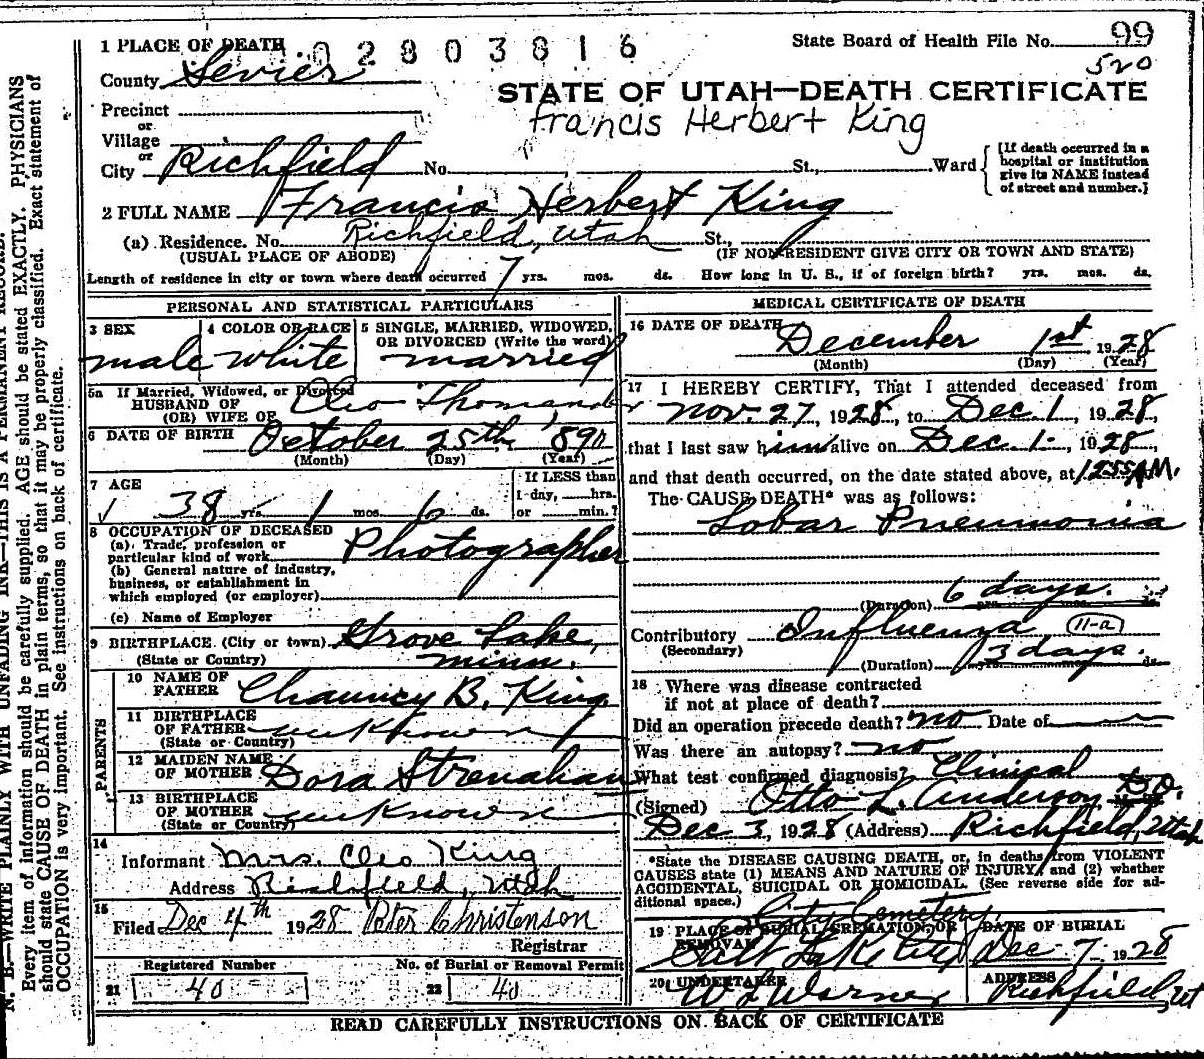 N. B.—WRITE PLAINLY WITH UNFADING INK—THIS IS A PERMANENT RECORD.
Every item of information should be carefully supplied. AGE should be stated EXACTLY. PHYSICIANS
should state CAUSE OF DEATH in plain terms, so that it may be properly classified. Exact statement of
OCCUPATION is very important. See instructions on back of certificate.
02803816
State Board of Health File No. 99
520
1 PLACE OF DEATH
County Sevier
STATE OF UTAH—DEATH CERTIFICATE
Francis Herbert King
Precinct
or
Village
or
City Richfield No. St., Ward
[If death occurred in a
hospital or institution
give its NAME instead
of street and number.]
2 FULL NAME Francis Herbert King
(a) Residence. No. Richfield, Utah St.,
(USUAL PLACE OF ABODE) (IF NON-RESIDENT GIVE CITY OR TOWN AND STATE)
Length of residence in city or town where death occurred 7 yrs. mos. ds. How long in U. S., if of foreign birth? yrs. mos. ds.
PERSONAL AND STATISTICAL PARTICULARS
3 SEX
male
4 COLOR OR RACE
white
5 SINGLE, MARRIED, WIDOWED,
OR DIVORCED (Write the word)
married
5a If Married, Widowed, or Divorced
HUSBAND OF
(OR) WIFE OF Cleo
6 DATE OF BIRTH October 25th, 1890
(Month) (Day) (Year)
7 AGE
38 yrs. 1 mos. 6 ds.
If LESS than
1 day, hrs.
or min.?
8 OCCUPATION OF DECEASED
(a) Trade, profession or
particular kind of work Photographer
(b) General nature of industry,
business, or establishment in
which employed (or employer)
(c) Name of Employer
9 BIRTHPLACE (City or town) Grove Lake,
(State or Country) Minn.
PARENTS
10 NAME OF
FATHER Chauncy B. King
11 BIRTHPLACE
OF FATHER unknown
(State or Country)
12 MAIDEN NAME
OF MOTHER Dora Strenahan
13 BIRTHPLACE
OF MOTHER unknown
(State or Country)
14
Informant Mrs. Cleo King
Address Richfield, Utah
15
Filed Dec 4th 1928 Peter Christenson
Registrar
Registered Number
21 40
No. of Burial or Removal Permit
22 40
MEDICAL CERTIFICATE OF DEATH
16 DATE OF DEATH
December 1st 1928
(Month) (Day) (Year)
17 I HEREBY CERTIFY, That I attended deceased from
Nov. 27, 1928, to Dec 1, 1928,
that I last saw him alive on Dec. 1, 1928
and that death occurred, on the date stated above, at 1255 A M.
The CAUSE DEATH* was as follows:
Lobar Pneumonia
(Duration) 6 days. yrs. mos. ds.
Contributory Influenza 11-a
(Secondary)
(Duration) 3 days. ds.
18 Where was disease contracted
if not at place of death?
Did an operation precede death? no Date of
Was there an autopsy? no
What test confirmed diagnosis? Clinical
(Signed) Otto L. Anderson D.O.
Dec 3, 1928 (Address) Richfield, Utah
*State the DISEASE CAUSING DEATH, or, in deaths from VIOLENT
CAUSES state (1) MEANS AND NATURE OF INJURY, and (2) whether
ACCIDENTAL, SUICIDAL OR HOMICIDAL. (See reverse side for ad-
ditional space.)
City Cemetery,
19 PLACE OF BURIAL, CREMATION, OR
REMOVAL
Salt Lake City
DATE OF BURIAL
Dec 7 1928
20 UNDERTAKER
W L Warner
ADDRESS
Richfield, Ut
READ CAREFULLY INSTRUCTIONS ON BACK OF CERTIFICATE